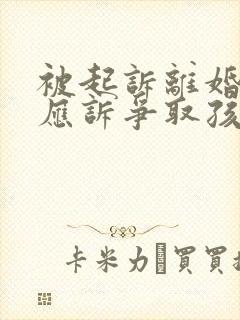 被起訴離婚
應訴爭取孩
卡米力買買提